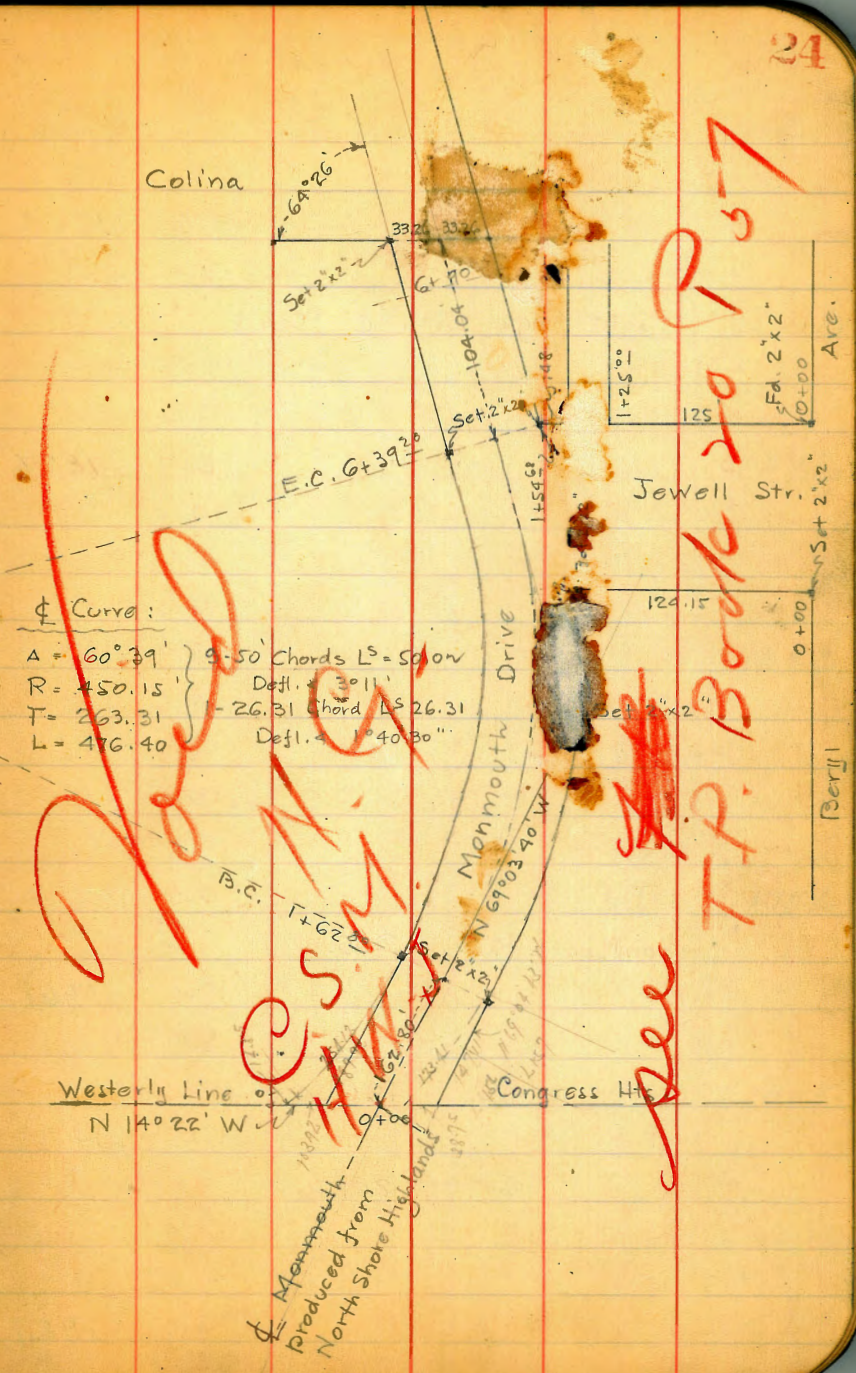 24
Colina
64°26'
33.26 33.26
Set 2"x2"
6+70
104.04
Set 2"x2"
1+25.00
125
Fd. 2"x2"
0+00
Ave.
E.C. 6+39.20
1+54.68
Jewell Str.
Set 2"x2"
124.15
0+00
℄ Curve:
Δ = 60°39'
R = 450.15'
T = 263.31
L = 476.40
9-50' Chords Lˢ = 50.10
Defl. ∠ 3°11'
1-26.31 Chord Lˢ 26.31
Defl. ∠ 1°40'30"
Set 2"x2"
Monmouth Drive
N 69°03'40" W
Beryl
B.C. 1+62.80
Set 2"x2"
162.80'
Westerly Line
Congress Hts
N 14°22' W
0+00
℄ Monmouth
produced from
North Shore Highlands
Void
N.G.
C.S.M.
H.W.J
see
T.P. Book 20 P 57